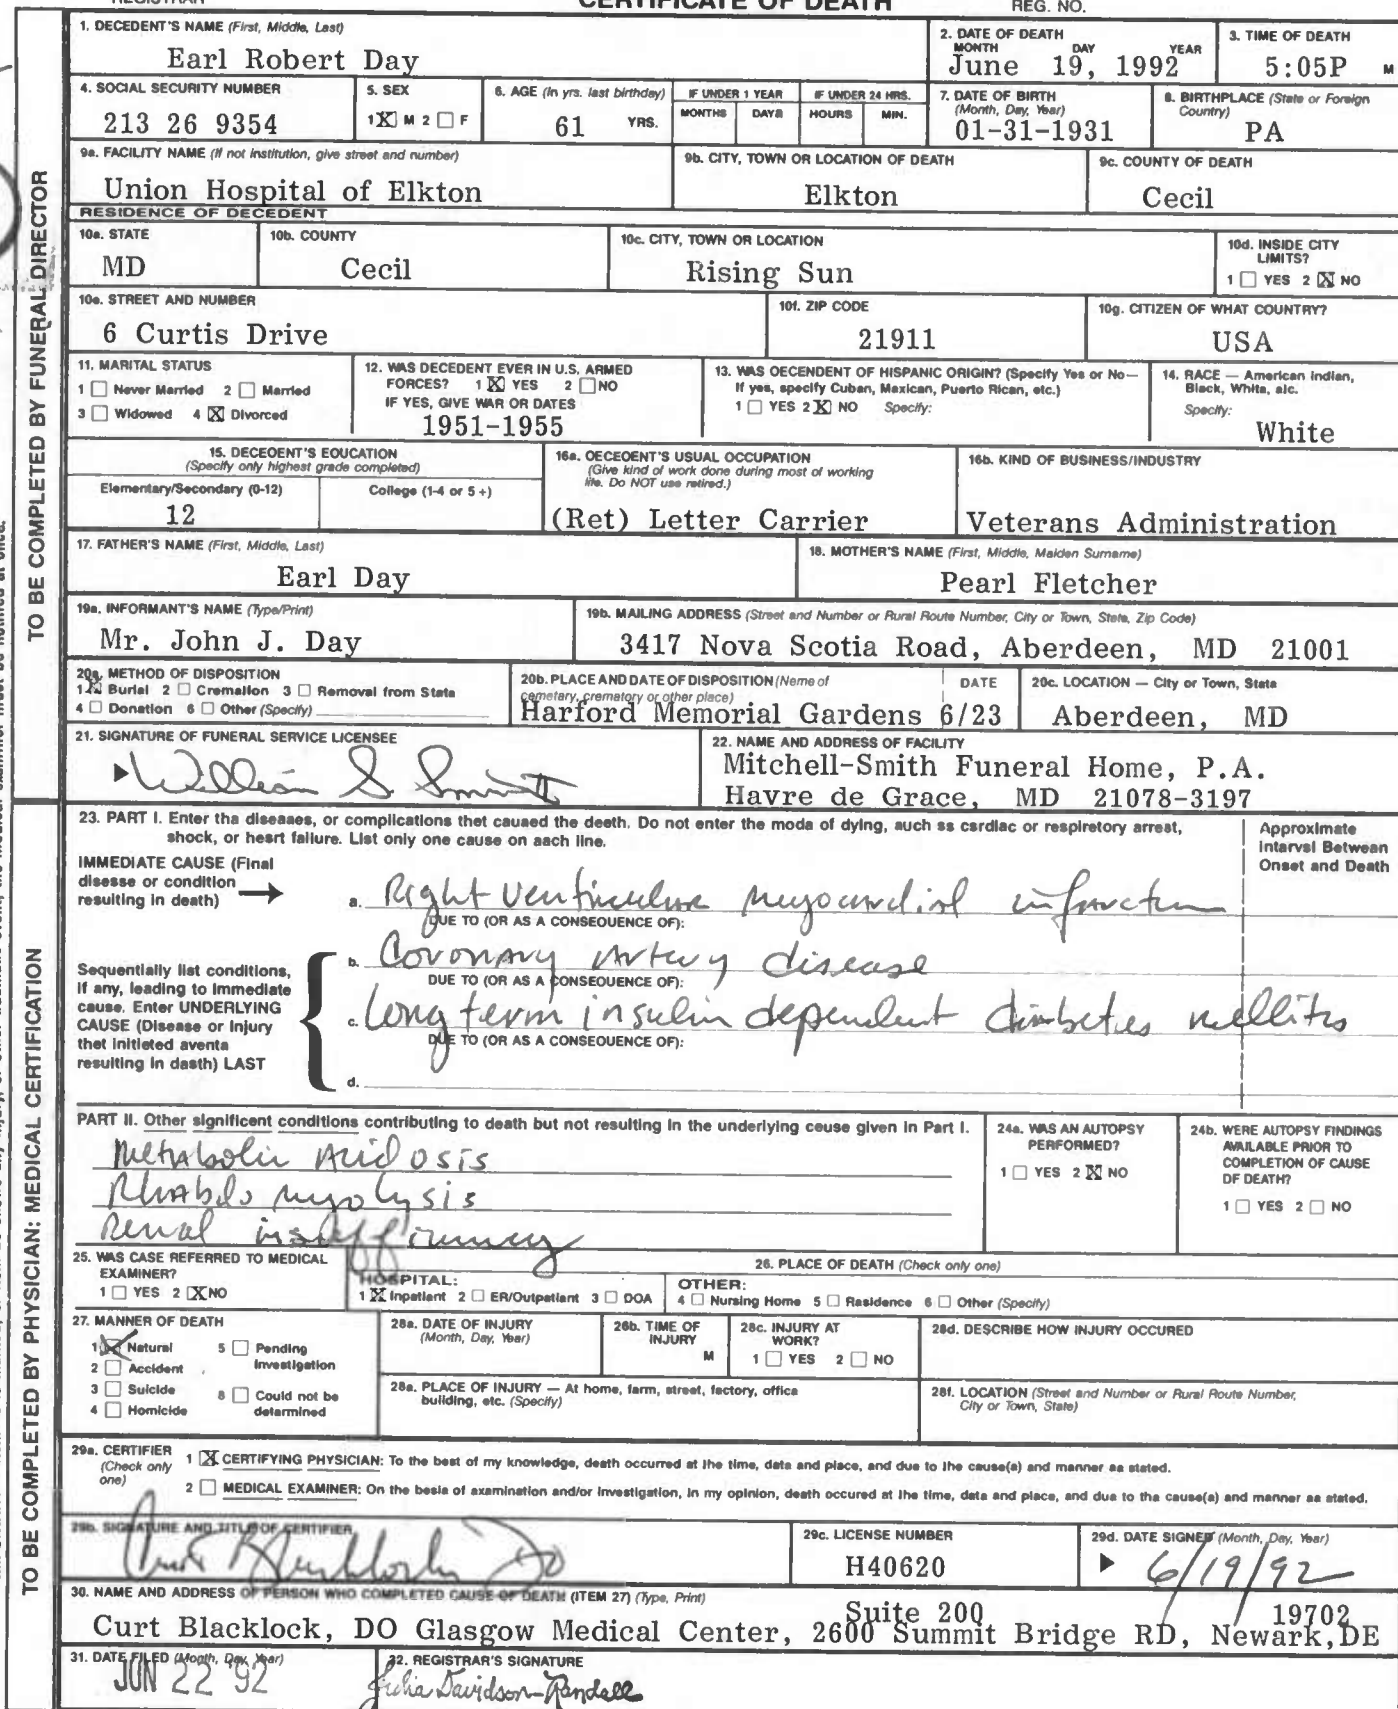 CERTIFICATE OF DEATH
REG. NO.
1. DECEDENT'S NAME (First, Middle, Last)
Earl Robert Day
2. DATE OF DEATH
MONTH DAY YEAR
June 19, 1992
3. TIME OF DEATH
5:05P M
4. SOCIAL SECURITY NUMBER
213 26 9354
5. SEX
1 X M 2 □ F
6. AGE (In yrs. last birthday)
61 YRS.
IF UNDER 1 YEAR
MONTHS DAYS
IF UNDER 24 HRS.
HOURS MIN.
7. DATE OF BIRTH
(Month, Day, Year)
01-31-1931
8. BIRTHPLACE (State or Foreign
Country)
PA
9a. FACILITY NAME (If not institution, give street and number)
Union Hospital of Elkton
9b. CITY, TOWN OR LOCATION OF DEATH
Elkton
9c. COUNTY OF DEATH
Cecil
RESIDENCE OF DECEDENT
10a. STATE
MD
10b. COUNTY
Cecil
10c. CITY, TOWN OR LOCATION
Rising Sun
10d. INSIDE CITY
LIMITS?
1 □ YES 2 X NO
10e. STREET AND NUMBER
6 Curtis Drive
10f. ZIP CODE
21911
10g. CITIZEN OF WHAT COUNTRY?
USA
11. MARITAL STATUS
1 □ Never Married 2 □ Married
3 □ Widowed 4 X Divorced
12. WAS DECEDENT EVER IN U.S. ARMED
FORCES? 1 X YES 2 □ NO
IF YES, GIVE WAR OR DATES
1951-1955
13. WAS DECENDENT OF HISPANIC ORIGIN? (Specify Yes or No—
If yes, specify Cuban, Mexican, Puerto Rican, etc.)
1 □ YES 2 X NO Specify:
14. RACE — American Indian,
Black, White, etc.
Specify:
White
15. DECEDENT'S EDUCATION
(Specify only highest grade completed)
Elementary/Secondary (0-12)
12
College (1-4 or 5+)
16a. DECEDENT'S USUAL OCCUPATION
(Give kind of work done during most of working
life. Do NOT use retired.)
(Ret) Letter Carrier
16b. KIND OF BUSINESS/INDUSTRY
Veterans Administration
17. FATHER'S NAME (First, Middle, Last)
Earl Day
18. MOTHER'S NAME (First, Middle, Maiden Surname)
Pearl Fletcher
19a. INFORMANT'S NAME (Type/Print)
Mr. John J. Day
19b. MAILING ADDRESS (Street and Number or Rural Route Number, City or Town, State, Zip Code)
3417 Nova Scotia Road, Aberdeen, MD 21001
20a. METHOD OF DISPOSITION
1 X Burial 2 □ Cremation 3 □ Removal from State
4 □ Donation 6 □ Other (Specify)
20b. PLACE AND DATE OF DISPOSITION (Name of
cemetery, crematory or other place) DATE
Harford Memorial Gardens 6/23
20c. LOCATION — City or Town, State
Aberdeen, MD
21. SIGNATURE OF FUNERAL SERVICE LICENSEE
William S Smith II
22. NAME AND ADDRESS OF FACILITY
Mitchell-Smith Funeral Home, P.A.
Havre de Grace, MD 21078-3197
TO BE COMPLETED BY FUNERAL DIRECTOR
23. PART I. Enter the diseases, or complications that caused the death. Do not enter the mode of dying, such as cardiac or respiratory arrest,
shock, or heart failure. List only one cause on each line.
Approximate
Interval Between
Onset and Death
IMMEDIATE CAUSE (Final
disease or condition
resulting in death)
a. Right ventricular myocardial infarction
DUE TO (OR AS A CONSEQUENCE OF):
Sequentially list conditions,
if any, leading to immediate
cause. Enter UNDERLYING
CAUSE (Disease or injury
that initiated events
resulting in death) LAST
b. Coronary Artery disease
DUE TO (OR AS A CONSEQUENCE OF):
c. Long term insulin dependent diabetes mellitus
DUE TO (OR AS A CONSEQUENCE OF):
d.
PART II. Other significant conditions contributing to death but not resulting in the underlying cause given in Part I.
Metabolic Acidosis
Rhabdomyolysis
Renal insufficiency
24a. WAS AN AUTOPSY
PERFORMED?
1 □ YES 2 X NO
24b. WERE AUTOPSY FINDINGS
AVAILABLE PRIOR TO
COMPLETION OF CAUSE
OF DEATH?
1 □ YES 2 □ NO
25. WAS CASE REFERRED TO MEDICAL
EXAMINER?
1 □ YES 2 X NO
26. PLACE OF DEATH (Check only one)
HOSPITAL:
1 X Inpatient 2 □ ER/Outpatient 3 □ DOA
OTHER:
4 □ Nursing Home 5 □ Residence 6 □ Other (Specify)
27. MANNER OF DEATH
1 X Natural 5 □ Pending
Investigation
2 □ Accident
3 □ Suicide 8 □ Could not be
determined
4 □ Homicide
28a. DATE OF INJURY
(Month, Day, Year)
28b. TIME OF
INJURY
M
28c. INJURY AT
WORK?
1 □ YES 2 □ NO
28d. DESCRIBE HOW INJURY OCCURED
28e. PLACE OF INJURY — At home, farm, street, factory, office
building, etc. (Specify)
28f. LOCATION (Street and Number or Rural Route Number,
City or Town, State)
29a. CERTIFIER
(Check only
one)
1 X CERTIFYING PHYSICIAN: To the best of my knowledge, death occurred at the time, date and place, and due to the cause(s) and manner as stated.
2 □ MEDICAL EXAMINER: On the basis of examination and/or investigation, in my opinion, death occured at the time, date and place, and due to the cause(s) and manner as stated.
29b. SIGNATURE AND TITLE OF CERTIFIER
Curt Blacklock DO
29c. LICENSE NUMBER
H40620
29d. DATE SIGNED (Month, Day, Year)
6/19/92
30. NAME AND ADDRESS OF PERSON WHO COMPLETED CAUSE OF DEATH (ITEM 27) (Type, Print)
Suite 200 19702
Curt Blacklock, DO Glasgow Medical Center, 2600 Summit Bridge RD, Newark, DE
31. DATE FILED (Month, Day, Year)
JUN 22 '92
32. REGISTRAR'S SIGNATURE
Julia Davidson-Randall
TO BE COMPLETED BY PHYSICIAN: MEDICAL CERTIFICATION